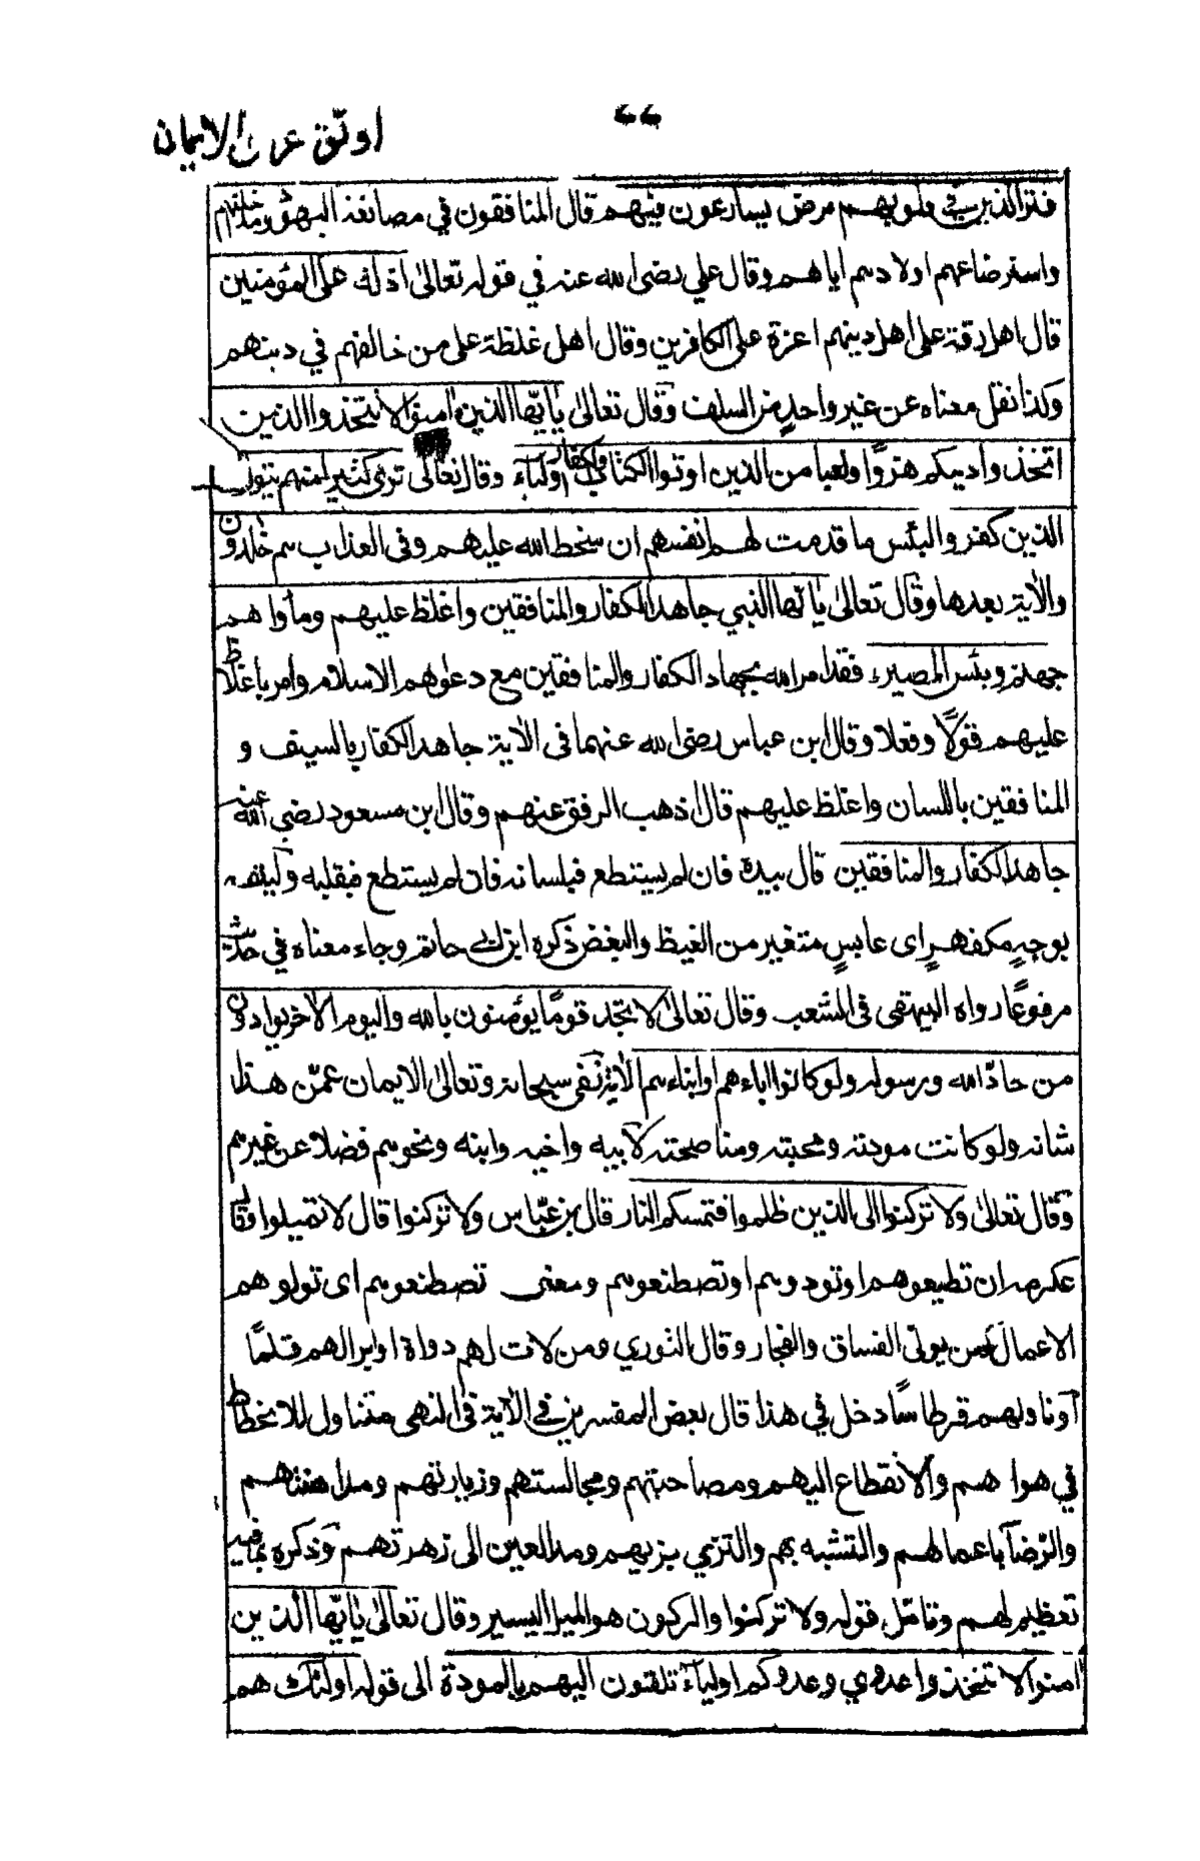 ٤٤
اوثق عرى الايمان
فترى الذين في قلوبهم مرض يسارعون فيهم قال المنافقون في مصانعة اليهود ومداخلتهم
واسترضاعهم اولادهم اياهم وقال علي رضى الله عنه في قوله تعالىٰ اذلة على المؤمنين
قال اهل رقة على اهل دينهم اعزة على الكافرين وقال اهل غلظة على من خالفهم في دينهم
وكذا نقل معناه عن غير واحدٍ من السلف وقال تعالىٰ يٰايّها الذين اٰمنوا لا تتخذوا الذين
اتخذوا دينكم هزوًا ولعبا من الذين اوتوا الكتاب والكفار اولياء وقال تعالىٰ ترىٰ كثيرا منهم يتولون
الذين كفروا لبئس ما قدمت لهم انفسهم ان سخط الله عليهم وفى العذاب هم خٰلدون
والاٰية بعدها وقال تعالىٰ يٰايّها النبي جاهد الكفار والمنافقين واغلظ عليهم ومأواهم
جهنم وبئس المصير، فقد امر الله بجهاد الكفار والمنافقين مع دعواهم الاسلام وامر باغلاظ
عليهم قولًا وفعلا وقال ابن عباس رضى الله عنهما فى الاٰية جاهد الكفار بالسيف و
المنافقين باللسان واغلظ عليهم قال اذهب الرفق عنهم وقال ابن مسعود رضي الله عنه
جاهد الكفار والمنافقين قال بيده فان لم يستطع فبلسانه فان لم يستطع فبقلبه وليلقه
بوجهٍ مكفهرٍ اى عابسٍ متغير من الغيظ والبغض ذكره ابن ابي حاتم وجاء معناه في حديث
مرفوعًا رواه البيهقى فى الشعب وقال تعالىٰ لا تجد قومًا يؤمنون بالله واليوم الاٰخر يوادون
من حادّ الله ورسوله ولو كانوا اباءهم او ابناءهم الاٰية نفى سبحانه وتعالىٰ الايمان عمّن هذا
شانه ولو كانت مودته ومحبته ومناصحته لأبيه واخيه وابنه ونحوهم فضلا عن غيرهم
وقال تعالىٰ ولا تركنوا الى الذين ظلموا فتمسكم النار قال بن عبّاس ولا تركنوا قال لا تميلوا وقال
عكرمه ان تطيعوهم او تودوهم او تصطنعوهم ومعنى تصطنعوهم اى تولوهم
الاعمال كمن يولّى الفساق والفجار وقال الثوري ومن لات لهم دواة او برا لهم قلمًا
او ناولهم قرطاسًا دخل في هذا قال بعض المفسرين في الاٰية فى النهى متناول للانحطاط
في هواهم والانقطاع اليهم ومصاحبتهم ومجالستهم وزيارتهم ومداهنتهم
والرّضآ باعمالهم والتشبه بهم والتزي بزيهم ومد العين الى زهرتهم وذكره بما فيه
تعظيم لهم وتامّل قوله ولا تركنوا والركون هو الميل اليسير وقال تعالىٰ يٰايّها الذين
اٰمنوا لا تتخذوا عدوي وعدوكم اولياء تلقون اليهم بالمودة الى قوله اولئك هم